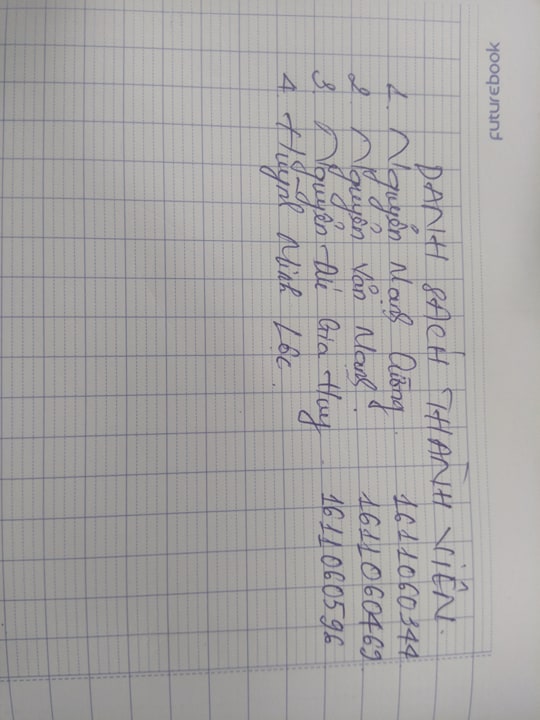 futurebook
DANH SÁCH THÀNH VIÊN.
1. Nguyễn Mạnh 1611060344
2. Nguyễn Văn Mạnh. 1611060469
3. Nguyễn Gia Huy 1611060596
4. Huỳnh Minh Lộc.